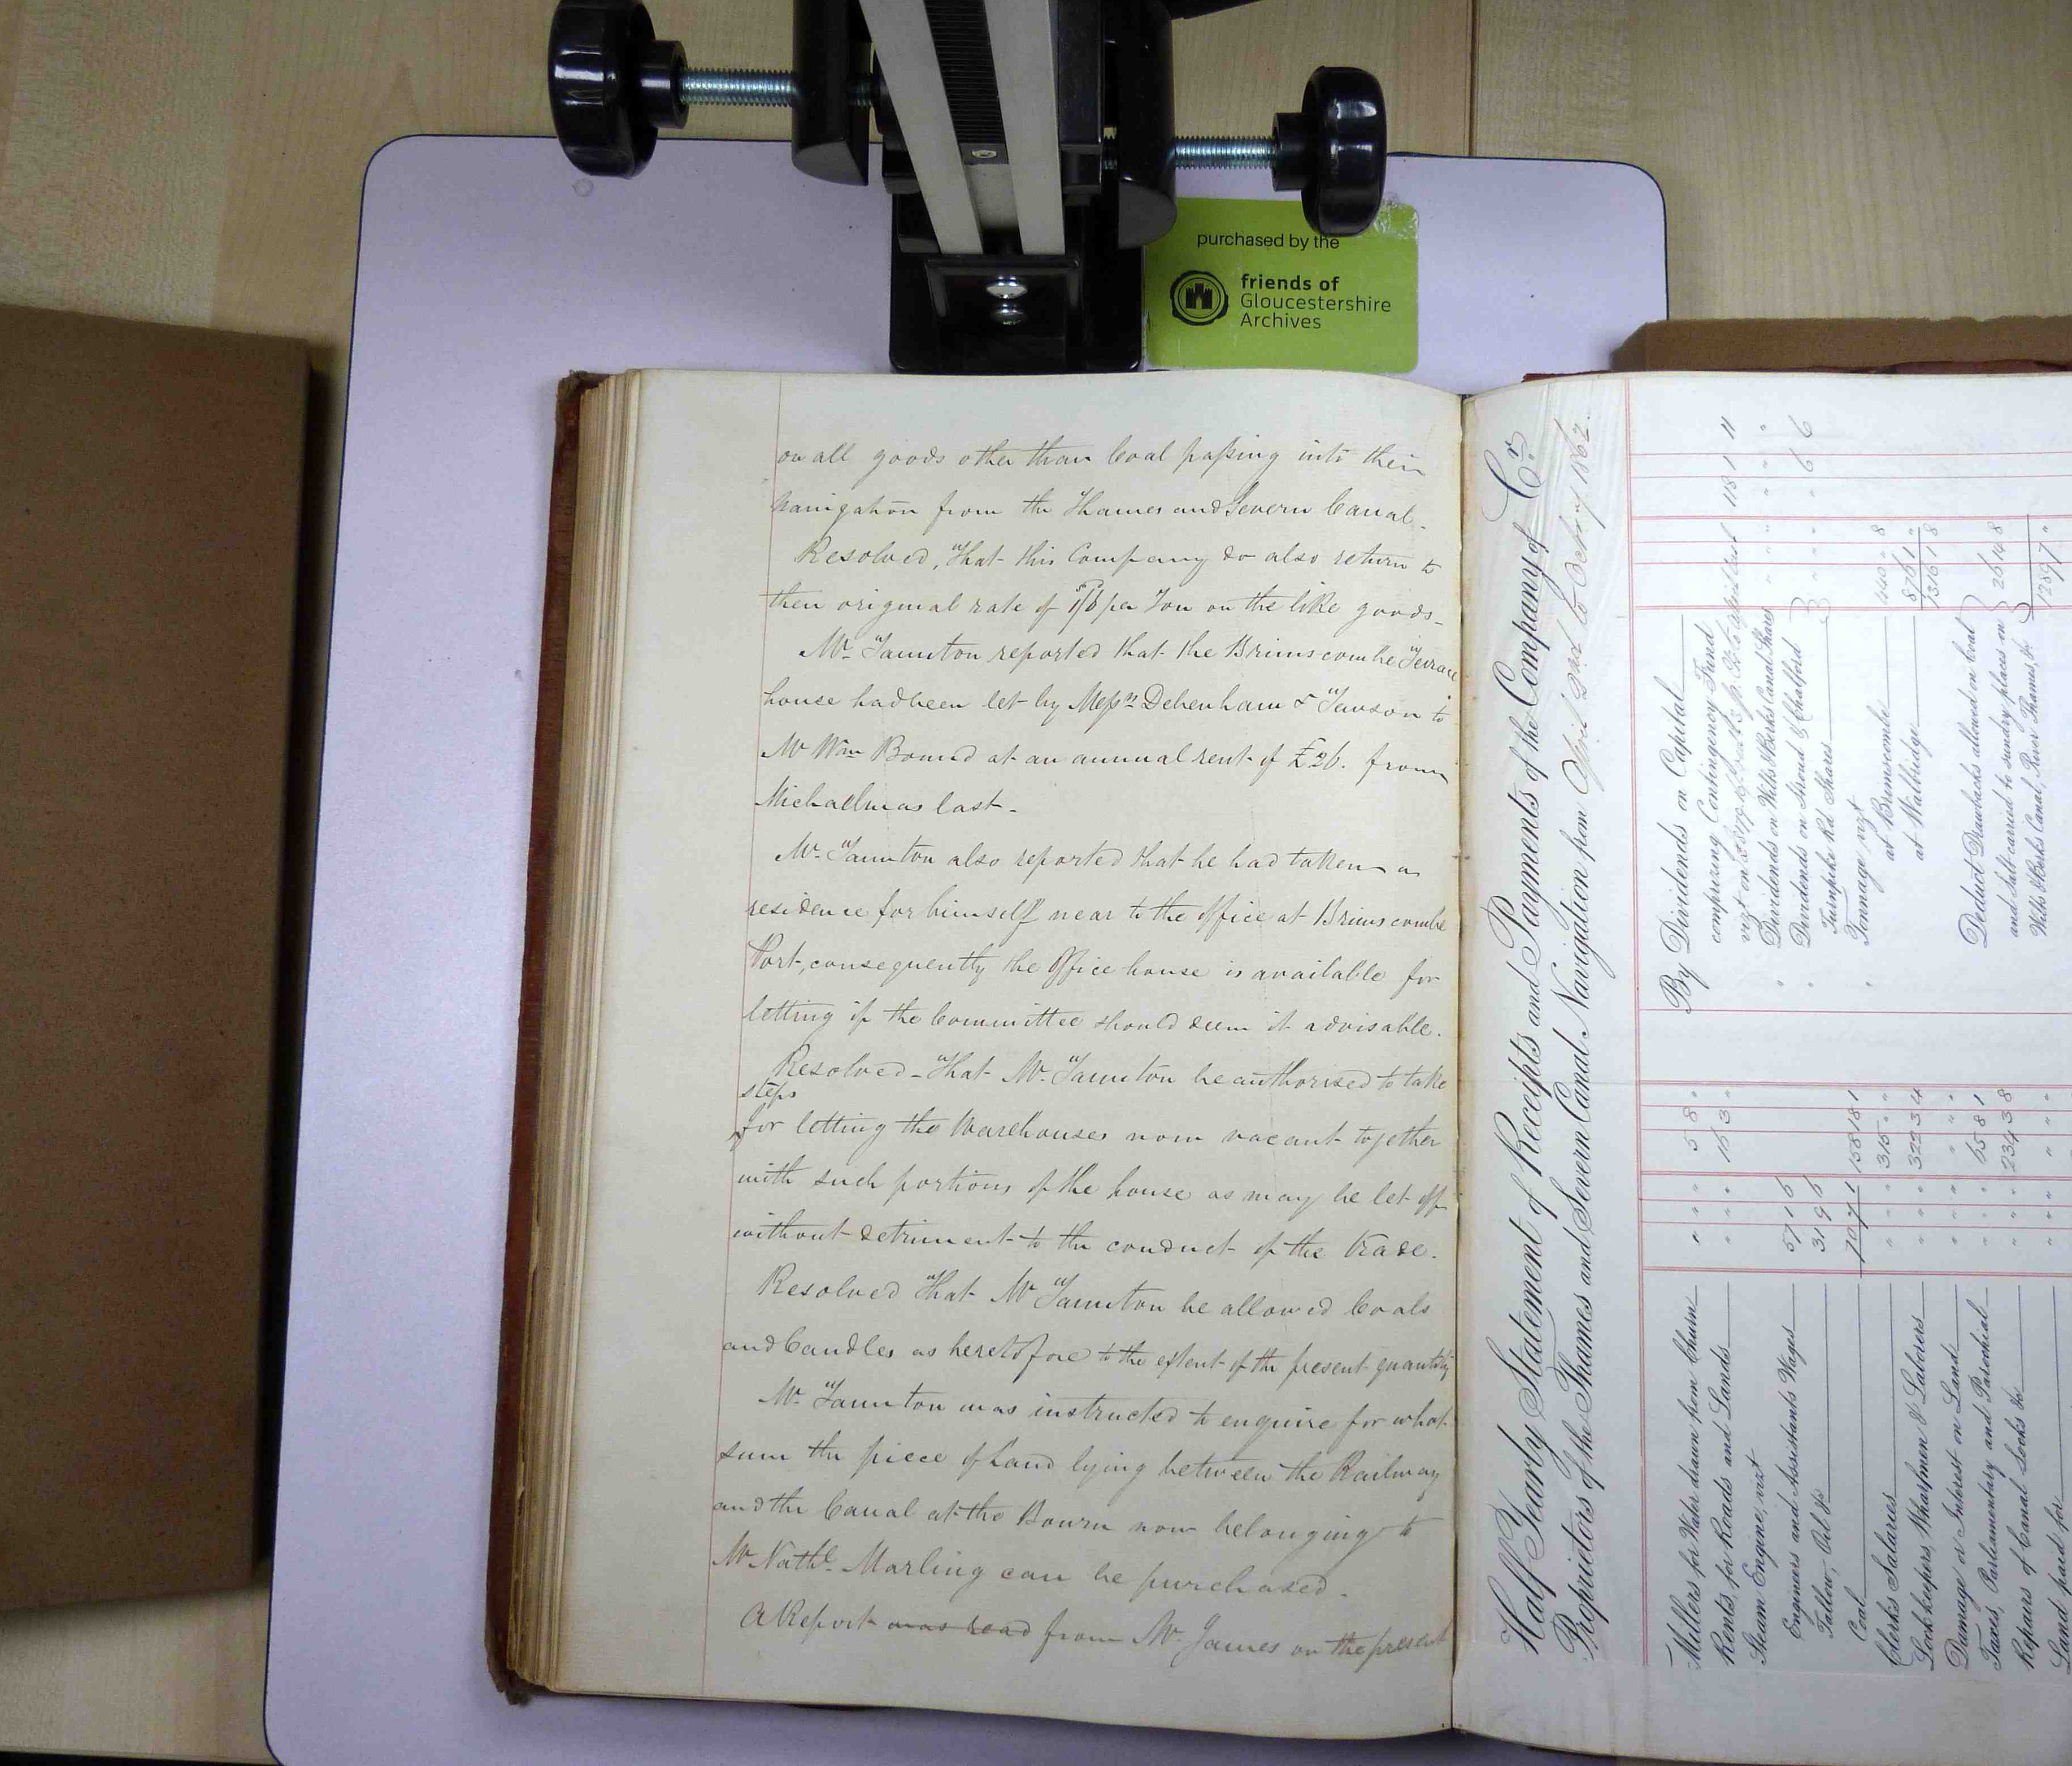 purchased by the
friends of
Gloucestershire
Archives
on all goods other than Coal paſsing into their
Navigation from the Thames and Severn Canal.
Resolved, That this Company do also return to
their original rate of per Ton on the like goods_
Mr. Taunton reported that the Brimscombe Terrace
house had been let by Meſsrs Debenham & Tewson to
Mr Wm at an annual rent of £26. from
Michaelmas last.
Mr. Taunton also reported that he had taken a
residence for himself near to the office at Brimscombe
Port, consequently the Office house is available for
letting if the Committee should deem it advisable.
Resolved - That Mr. Taunton be authorised to take
steps
for letting the Warehouses now vacant together
with such portions of the house as may be let off
without detriment to the conduct of the trade.
Resolved That Mr Taunton be allowed Coals
and Candles as heretofore to the extent of the present quantity
Mr. Taunton was instructed to enquire for what
sum the piece of Land lying between the Railway
and the Canal at the Bourn now belonging to
Mr Nathl. Marling can be purchased.
A Report was read from Mr. James on the present
Half Yearly Statement of Receipts and Payments of the Company of Cr.
Proprietors of the Thames and Severn Canal Navigation from April 2nd to Octr. 1862.
Millers for Water drawn from Churn " " " 5 8 "
Rents, for Roads and Lands " " " 16 3 "
Steam Engine, vizt
Engineers and Assistants Wages 57 1 6
Tallow, Oil &c
Coal 70 7 1 158 18 1
Clerks Salaries " " " 315 " "
Lockkeepers, Wharfmen & Laborers " " " 322 3 4
Damage or Interest on Land " " "
Taxes, Parliamentary and Parochial " " " 65 8 1
Repairs of Canal Locks &c " " " 234 3 8
Land paid for " " "
By Dividends on Capital
comprising Contingency Fund
vizt on 118 1 11
" Dividends on Wilts & Berks Canal Shares " " " " " "
" Dividends on Stroud & Chalford
Turnpike Rd. Shares " " " 6 6
" Tonnage vizt
at Brimscombe 440 " 8
at Wallbridge 876 1 "
1316 1 8
Deduct Drawbacks allowed on Coal
and Salt carried to sundry places on
Wilts & Berks Canal, River Thames, &c 26 14 8
1289 7 "